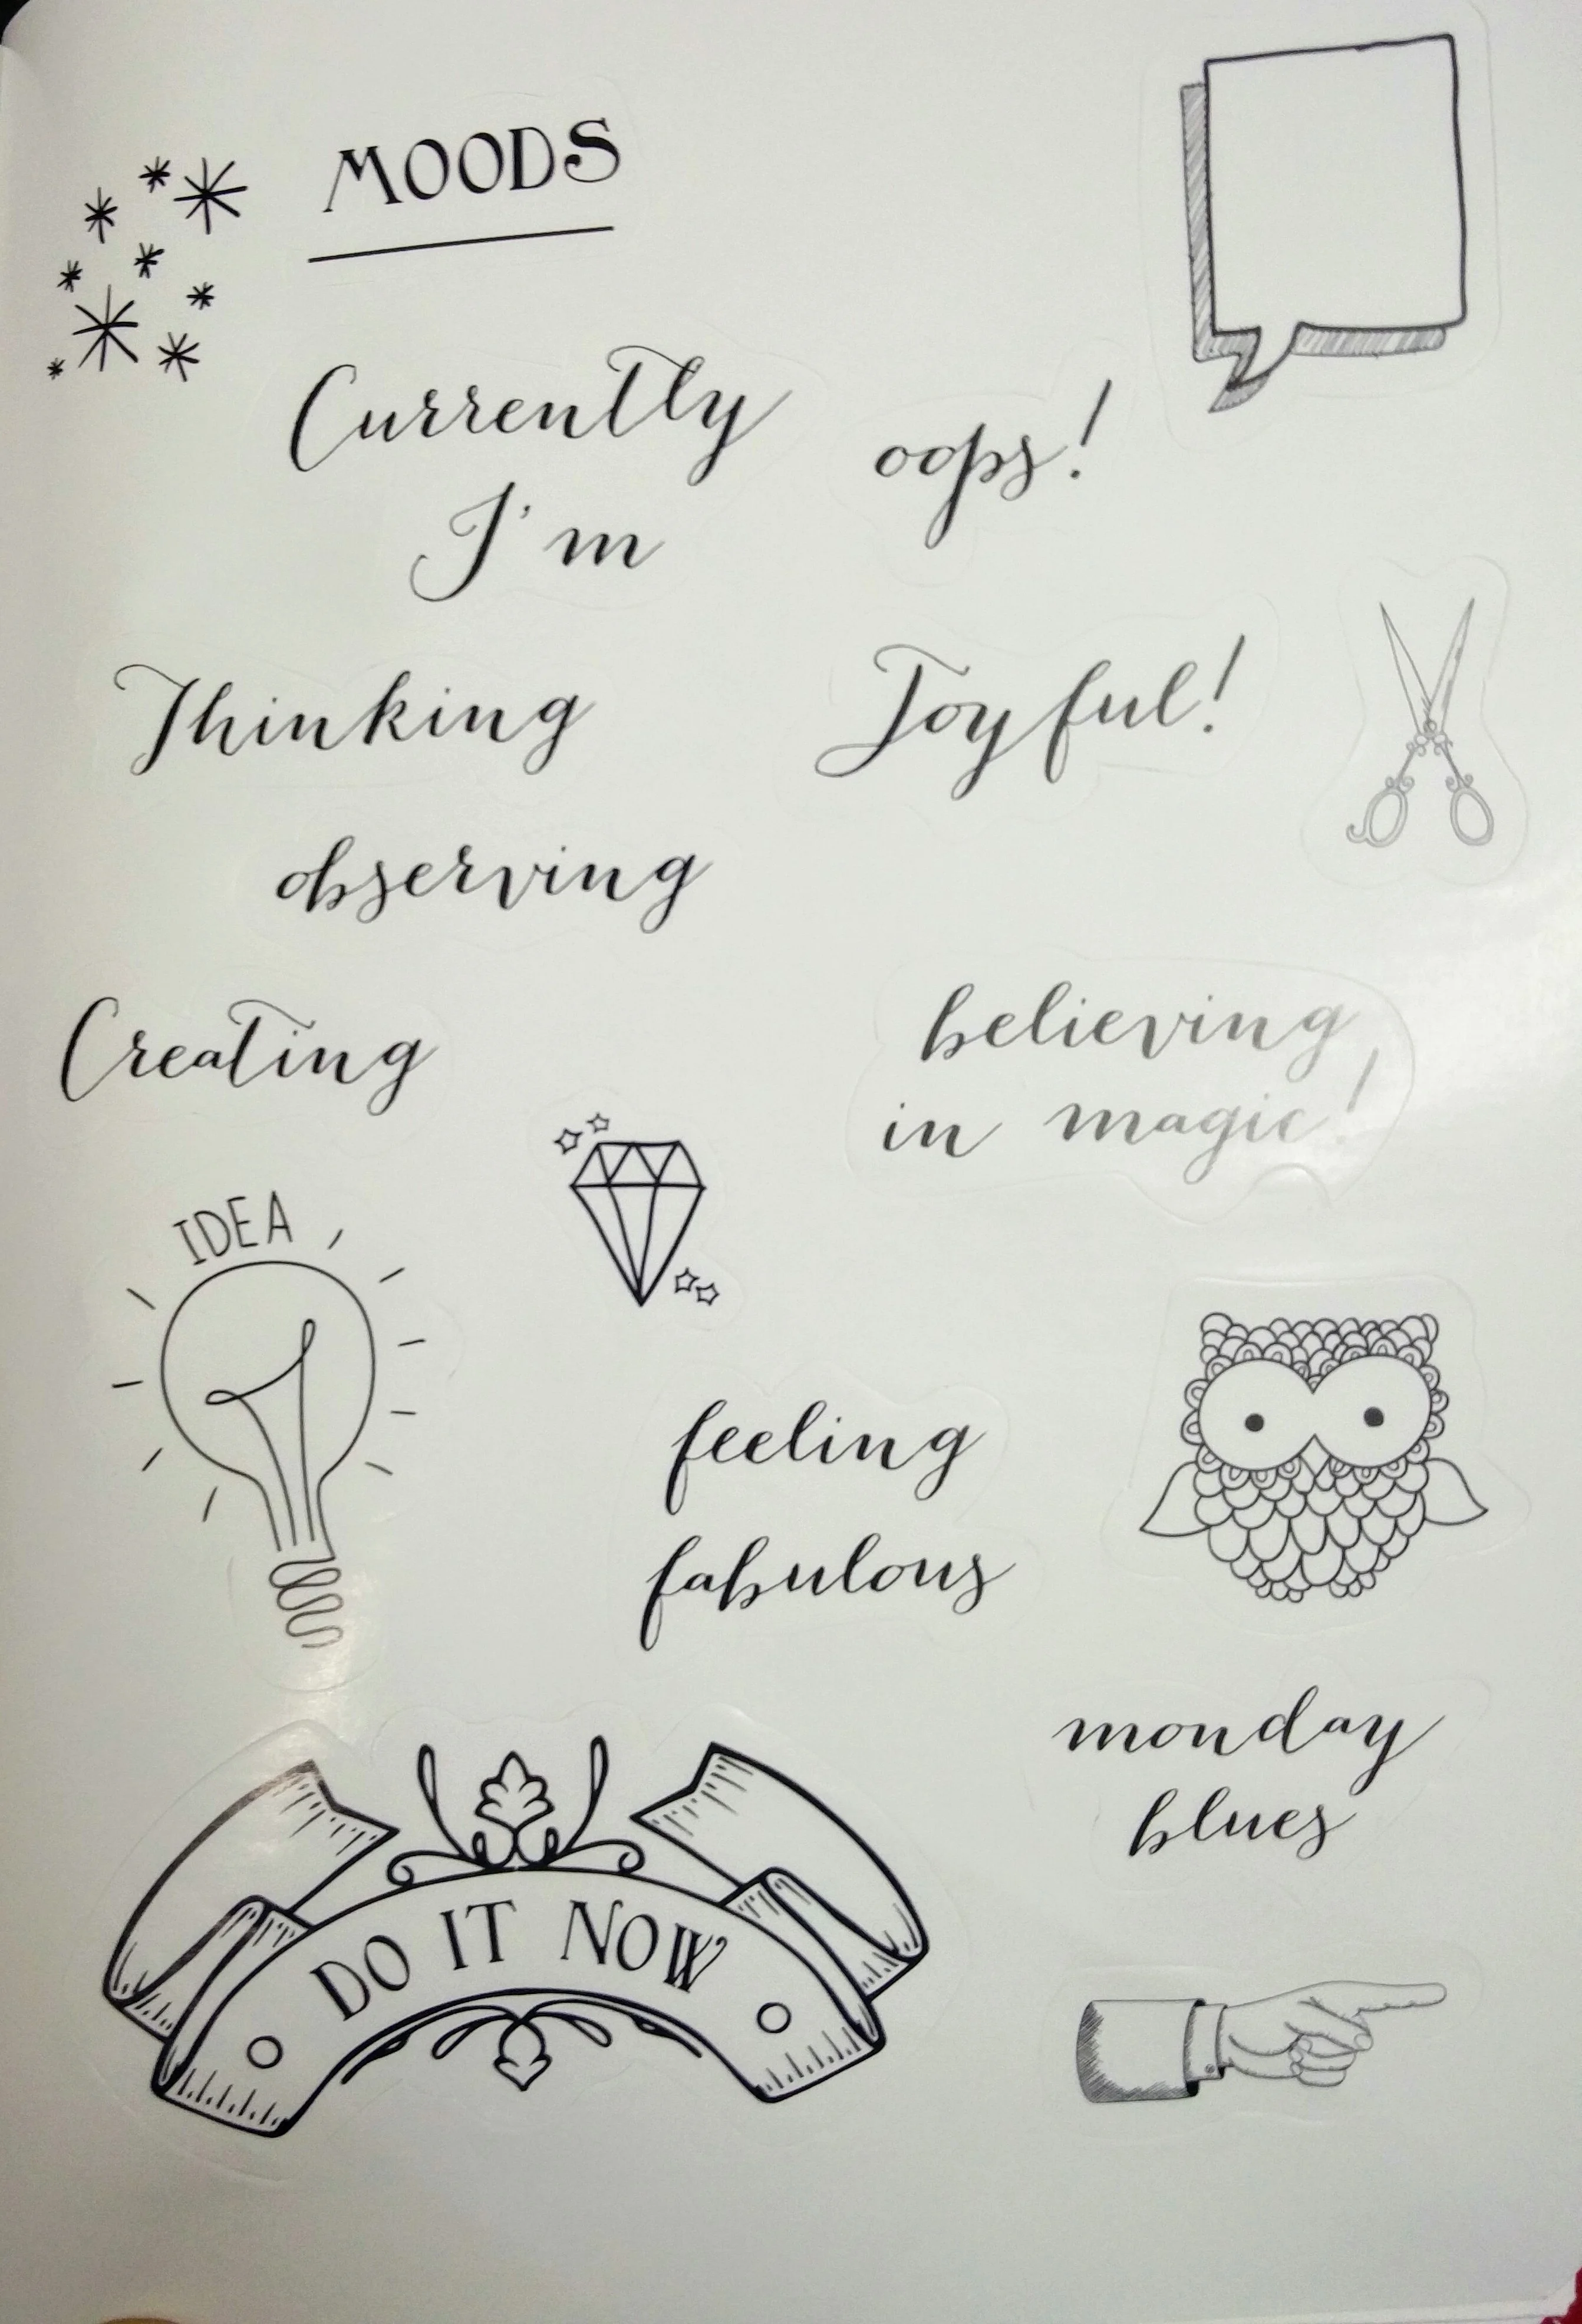 MOODS
Currently
I'm
oops!
Thinking
Joyful!
observing
Creating
believing
in magic!
IDEA
feeling
fabulous
monday
blues
DO IT NOW